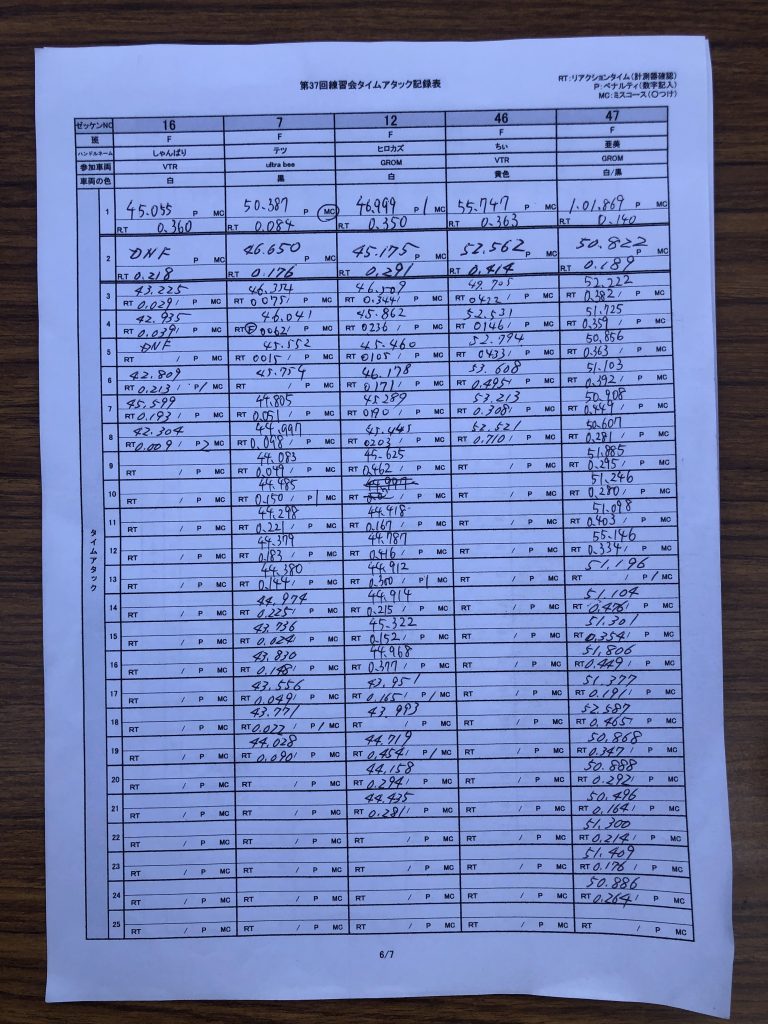 第37回練習会タイムアタック記録表
RT:リアクションタイム(計測器確認)
P:ペナルティ(数字記入)
MC:ミスコース(○つけ)
ゼッケンNO 16 7 12 46 47
班 F F F F F
ハンドルネーム しゃんぱり テツ ヒロカズ ちぃ 亜美
参加車両 VTR ultra bee GROM VTR GROM
車両の色 白 黒 白 黄色 白/黒
タイムアタック
1 45.055 P MC 50.387 P MC 46.999 P 1 MC 55.747 P MC 1.01.869 P MC
RT 0.360 RT 0.084 RT 0.350 RT 0.363 RT 0.140
2 DNF P MC 46.650 P MC 45.175 P MC 52.562 P MC 50.822 P MC
RT 0.218 RT 0.176 RT 0.291 RT 0.414 RT 0.189
3 43.225 46.354 46.509 49.705 52.222
RT 0.029 / P MC RT 0075 / P MC RT 0.344 / P MC RT 0422 / P MC RT 0.282 / P MC
4 42.935 46.041 45.862 52.531 51.725
RT 0.039 / P MC RT F 0062 / P MC RT 0236 / P MC RT 0146 / P MC RT 0.359 / P MC
5 DNF 45.552 45.460 52.794 50.856
RT / P MC RT 0015 / P MC RT 0105 / P MC RT 0433 / P MC RT 0.363 / P MC
6 42.809 45.754 46.178 53.608 51.103
RT 0.213 / P 1 MC RT / P MC RT 0171 / P MC RT 0.495 / P MC RT 0.392 / P MC
7 45.599 44.805 45.289 53.213 50.908
RT 0.193 / P MC RT 0.051 / P MC RT 0190 / P MC RT 0.308 / P MC RT 0.449 / P MC
8 42.304 44.997 45.445 52.521 50.607
RT 0.009 / P 2 MC RT 0.098 / P MC RT 0203 / P MC RT 0.710 / P MC RT 0.281 / P MC
9 44.083 45.625 51.885
RT / P MC RT 0.049 / P MC RT 0.462 / P MC RT / P MC RT 0.295 / P MC
10 44.485 51.246
RT / P MC RT 0.150 / P 1 MC RT / P MC RT / P MC RT 0.280 / P MC
11 44.298 44.418 51.098
RT / P MC RT 0.221 / P MC RT 0.167 / P MC RT / P MC RT 0.403 / P MC
12 44.379 44.787 55.146
RT / P MC RT 0.183 / P MC RT 0.416 / P MC RT / P MC RT 0.334 / P MC
13 44.380 44.912 51.196
RT / P MC RT 0.144 / P MC RT 0.360 / P 1 MC RT / P MC RT / P 1 MC
14 44.974 44.914 51.104
RT / P MC RT 0.225 / P MC RT 0.215 / P MC RT / P MC RT 0.476 / P MC
15 43.736 45.322 51.301
RT / P MC RT 0.024 / P MC RT 0.152 / P MC RT / P MC RT 0.354 / P MC
16 43.830 44.968 51.806
RT / P MC RT 0.148 / P MC RT 0.377 / P MC RT / P MC RT 0.449 / P MC
17 43.556 43.951 51.377
RT / P MC RT 0.049 / P MC RT 0.165 / P 1 MC RT / P MC RT 0.191 / P MC
18 43.771 43.993 52.587
RT / P MC RT 0.022 / P 1 MC RT / P MC RT / P MC RT 0.465 / P MC
19 44.028 44.719 50.868
RT / P MC RT 0.090 / P MC RT 0.454 / P 1 MC RT / P MC RT 0.347 / P MC
20 44.158 50.888
RT / P MC RT / P MC RT 0.294 / P MC RT / P MC RT 0.292 / P MC
21 44.435 50.496
RT / P MC RT / P MC RT 0.281 / P MC RT / P MC RT 0.164 / P MC
22 51.300
RT / P MC RT / P MC RT / P MC RT / P MC RT 0.214 / P MC
23 51.409
RT / P MC RT / P MC RT / P MC RT / P MC RT 0.176 / P MC
24 50.886
RT / P MC RT / P MC RT / P MC RT / P MC RT 0.264 / P MC
25 RT / P MC RT / P MC RT / P MC RT / P MC RT / P MC
6/7